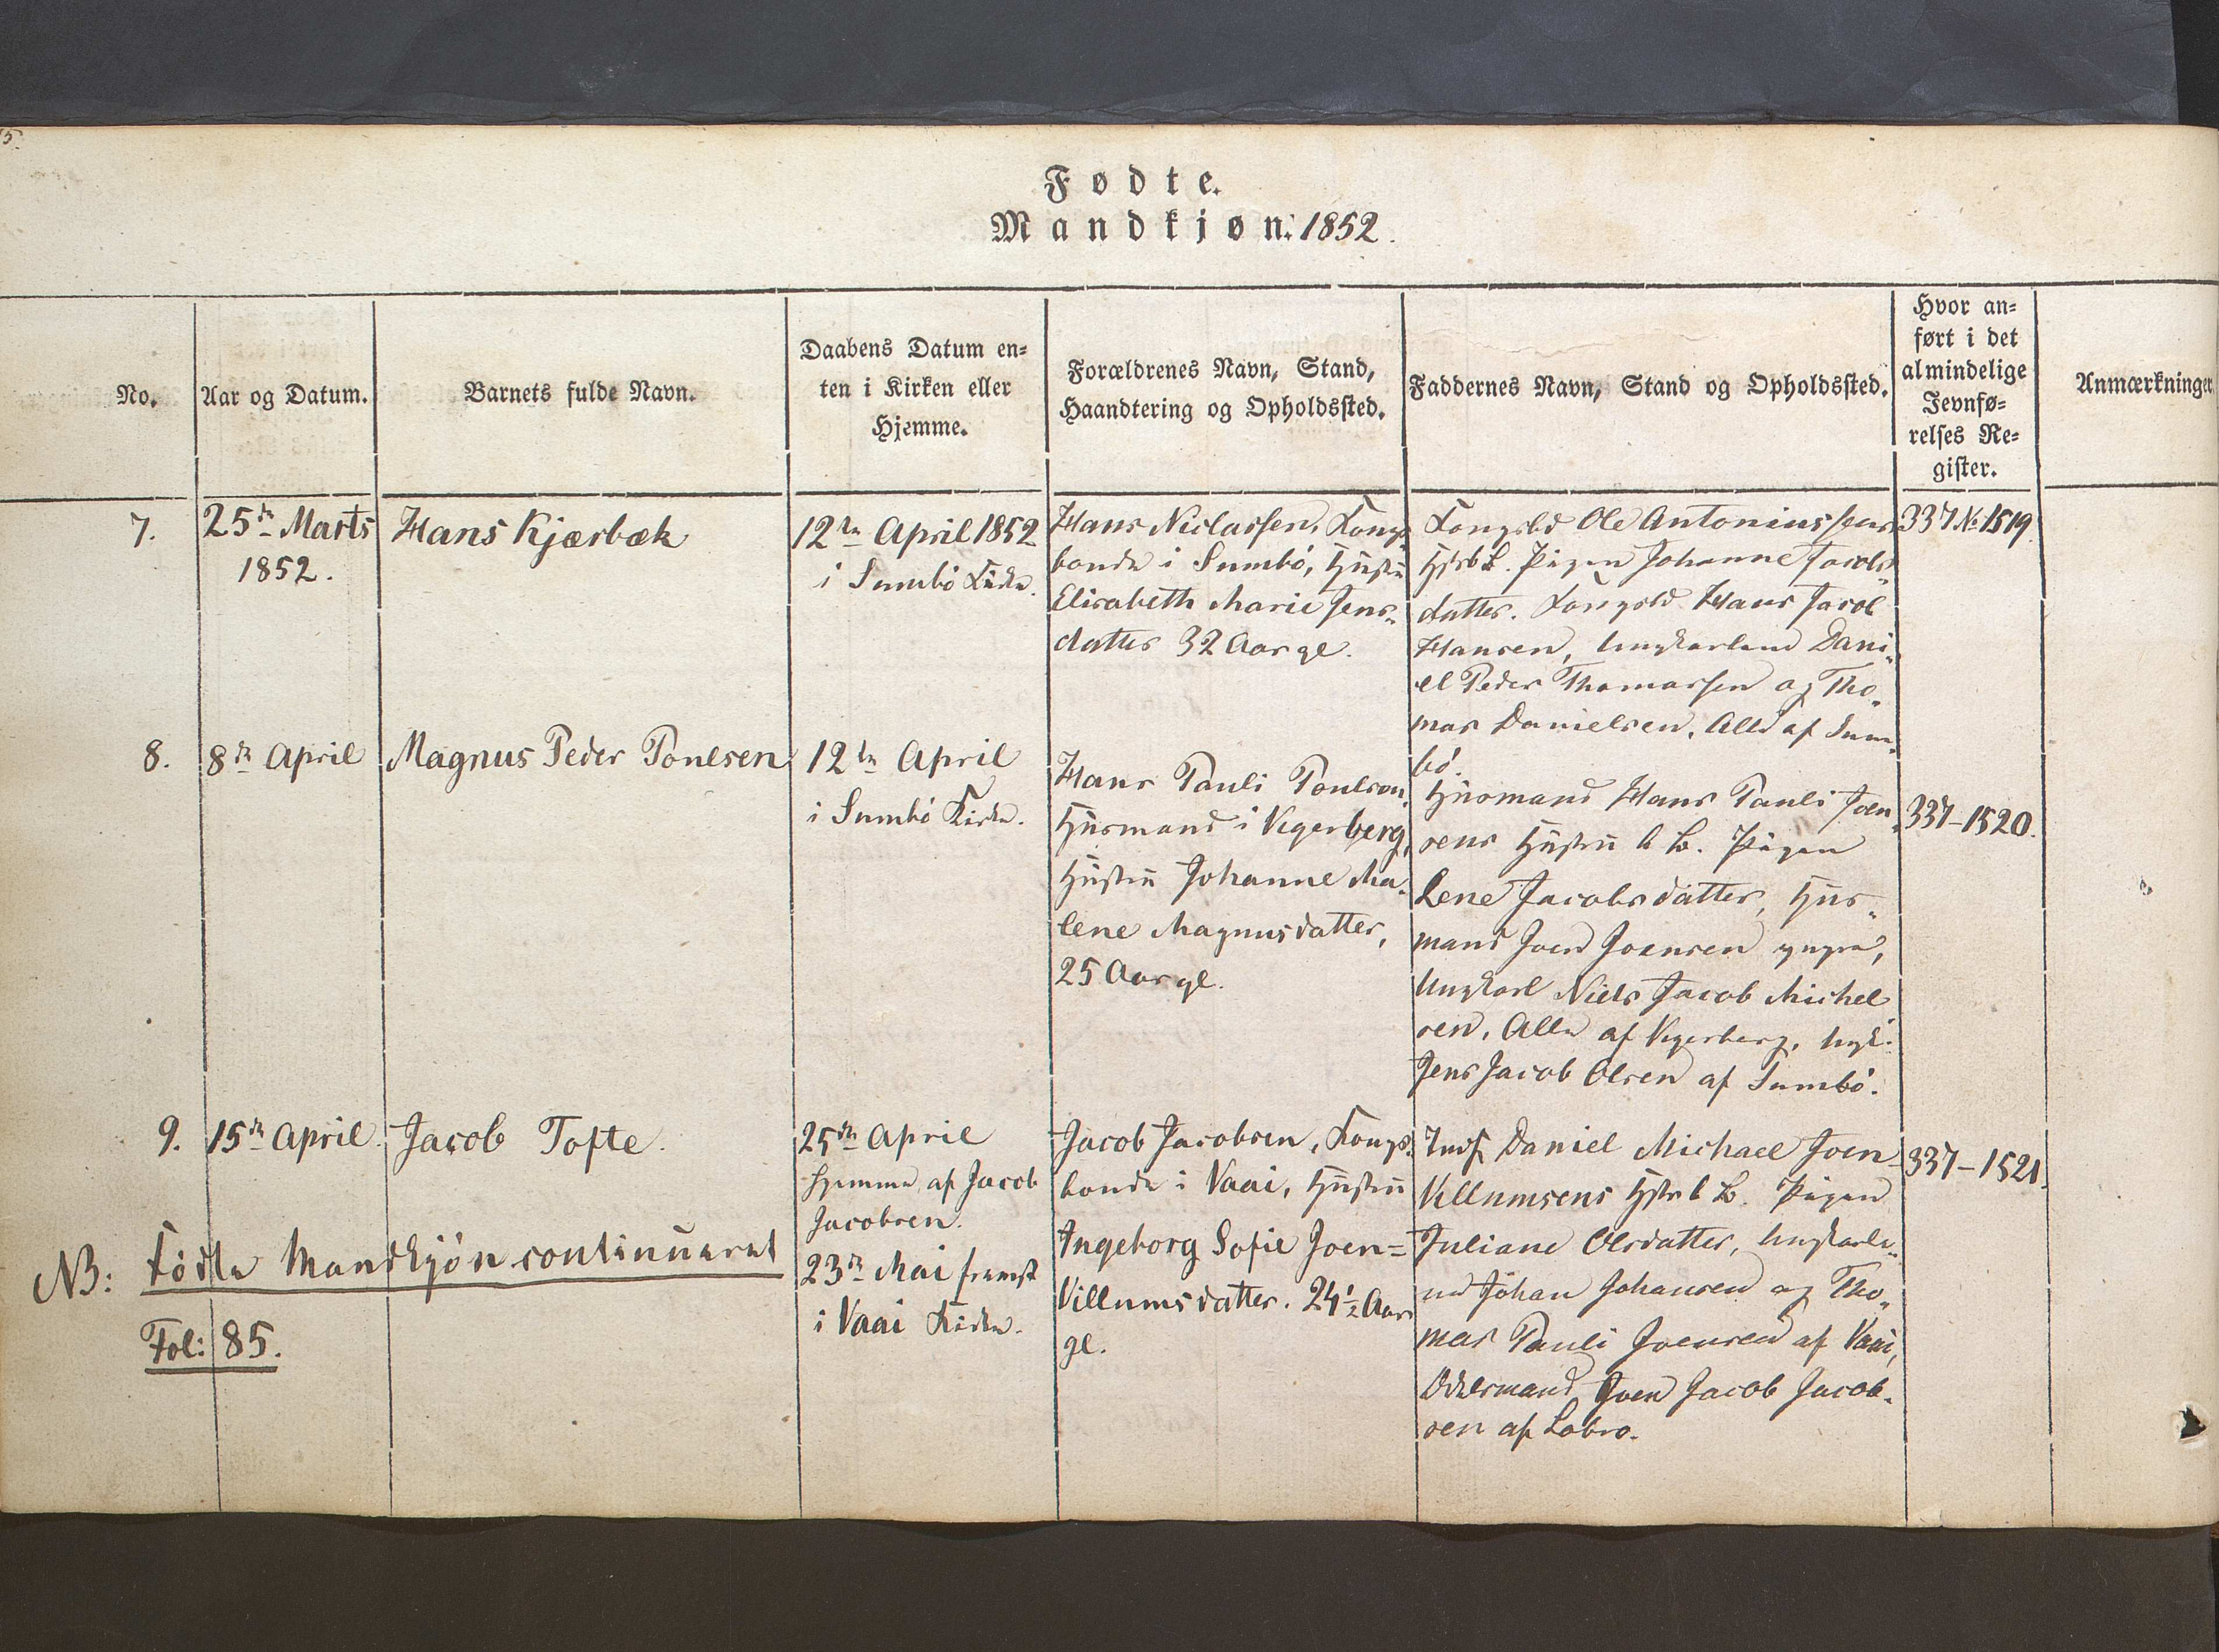 Fødte.
Mandkjøn. 1852.
No.
Aar og Datum.
Barnets fulde Navn.
Daabens Datum en-
ten i Kirken eller
Hjemme.
Forældrenes Navn, Stand,
Haandtering og Opholdssted.
Faddernes Navn, Stand og Opholdssted.
Hvor an-
ført i det
almindelige
Jevnfø-
relses Re-
gister.
Anmærkninger
7.
25de Marts
1852.
Hans Kjærbæk
12te April 1852
i Sumbö Kirke.
Hans Niclassen, Kongs-
bonde i Sumbö, Hustru
Elisabeth Marie Jens-
datter 32 Aar gl.
Ole Antoniussens
Pigen Johanne Jacobs-
datter. Hans Jacob
Hansen, Ungkarlene Dani-
el Peder Thomassen og Tho-
mas Danielsen, Alle af Sum-
bö.
337 No 1519.
8.
8de April
Magnus Peder Poulsen
12te April
i Sumbö Kirke.
Hans Pauli Poulsen,
Husmand i Vigerberg,
Hustru Johanne Ma-
lene Magnusdatter,
25 Aar gl.
Husmand Hans Pauli Joen-
sens Hustru b. L. Pigen
Lene Jacobsdatter, Hus-
mand Joen Joensen yngre,
Ungkarl Niels Jacob Michel
sen, Alle af Vigerberg, Ungk:
Jens Jacob Olsen af Sumbö.
337-1520.
9.
15de April.
Jacob Tofte.
25de April
hjemme af Jacob
Jacobsen.
23de Mai fremst
i Vaai Kirke.
Jacob Jacobsen, Kongs-
bonde i Vaai, Hustru
Ingeborg Sofie Joen=
Villumsdatter. 24½ Aar
gl.
Daniel Michael Joen
Villumsens b. L. Pigen
Juliane Olsdatter, Ungkarle-
ne Johan Johansen og Tho-
mas Pauli Joensen af Vaai,
Joen Jacob Jacob-
sen af Lobro.
337-1521.
NB: Födte Mandkjön continueret
Fol: 85.